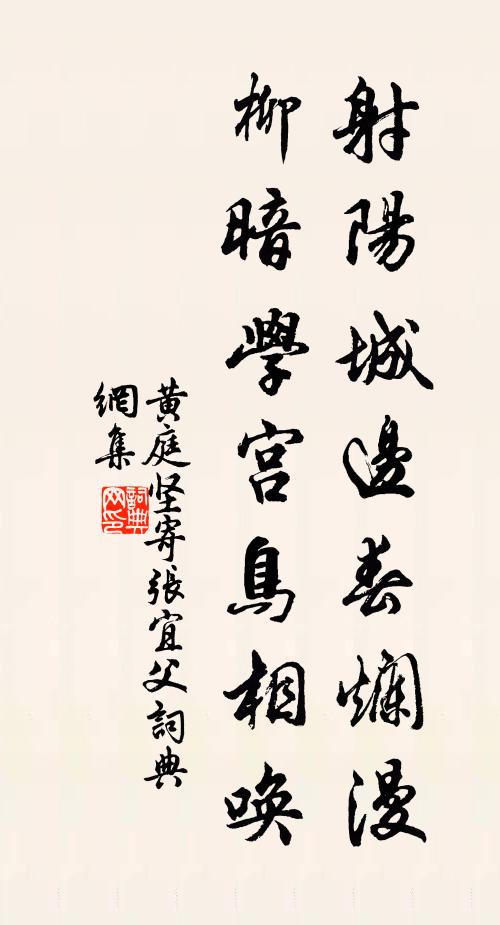 射陽城邊春爛漫
柳暗學宮鳥相唤
黃庭坚寄張宜父詞典
網集
詞典
网印